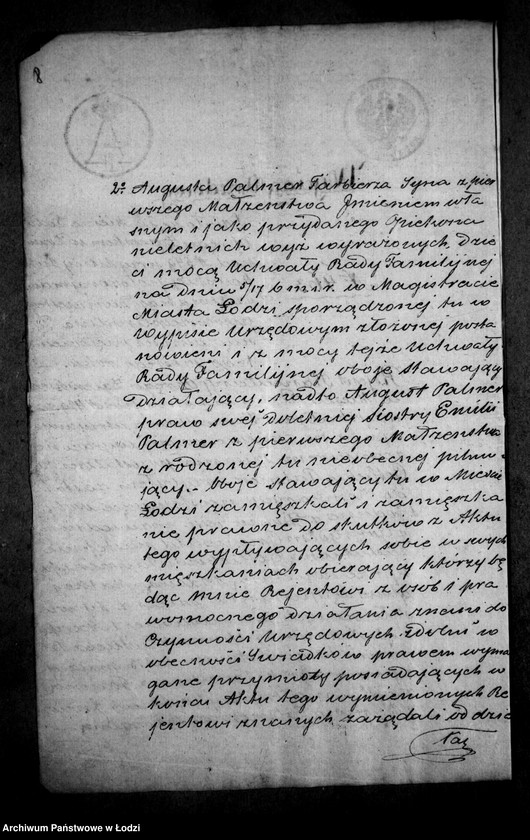 8
2º Augusta Palmer Farbierza Syna z pier
wszego Małżeństwa Imieniem wła
snym i jako przydanego Opiekuna
nieletnich wyż wyrażonych Dzie
ci mocą Uchwały Rady Familijnej
na dniu 5/17 b m i r. w Magistracie
Miasta Łodzi sporządzonej tu w
Wypisie Urzędowym złożonej posta
nowieni i z mocy tejże Uchwały
Rady Familijnej oboje stawający
Działający, nadto August Palmer
praw swej Doletniej Siostry Emilii
Palmer z pierwszego Małżeństwa
zrodzonej tu nieobecnej pilnu
jący.. Oboje stawający tu w Mieście
Łodzi zamięszkali i zamięszka
nie prawne do skutków z Aktu
tego wypływających sobie w swych
mięszkaniach obierający którzy bę
dąc mnie Rejentowi z osób i pra
womocnego działania znani do
Czynności Urzędowych zdolni w
obecności Świadków prawem wyma
gane przymioty posiadających w
końcu Aktu tego wymienionych Re
jentowi znanych zażądali od dzie